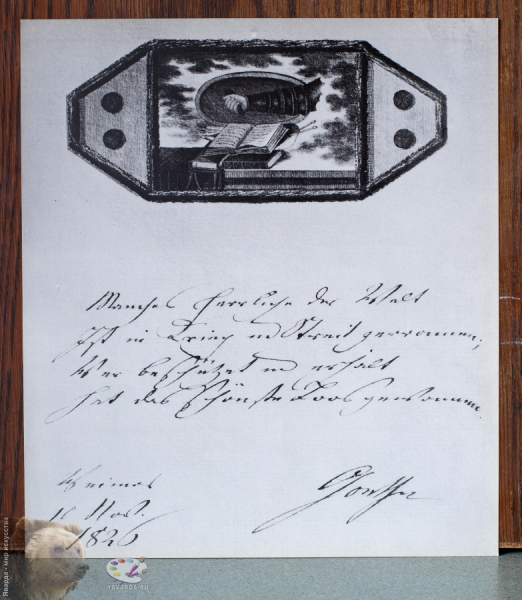 Manches Herrliche der Welt
Ist in Krieg und Streit zerronnen;
Wer beschützet und erhält
Hat das schönste Loos gewonnen.
Weimar
Nov.
1826
Goethe
Яварда - мир искусства
YAVARDA.RU